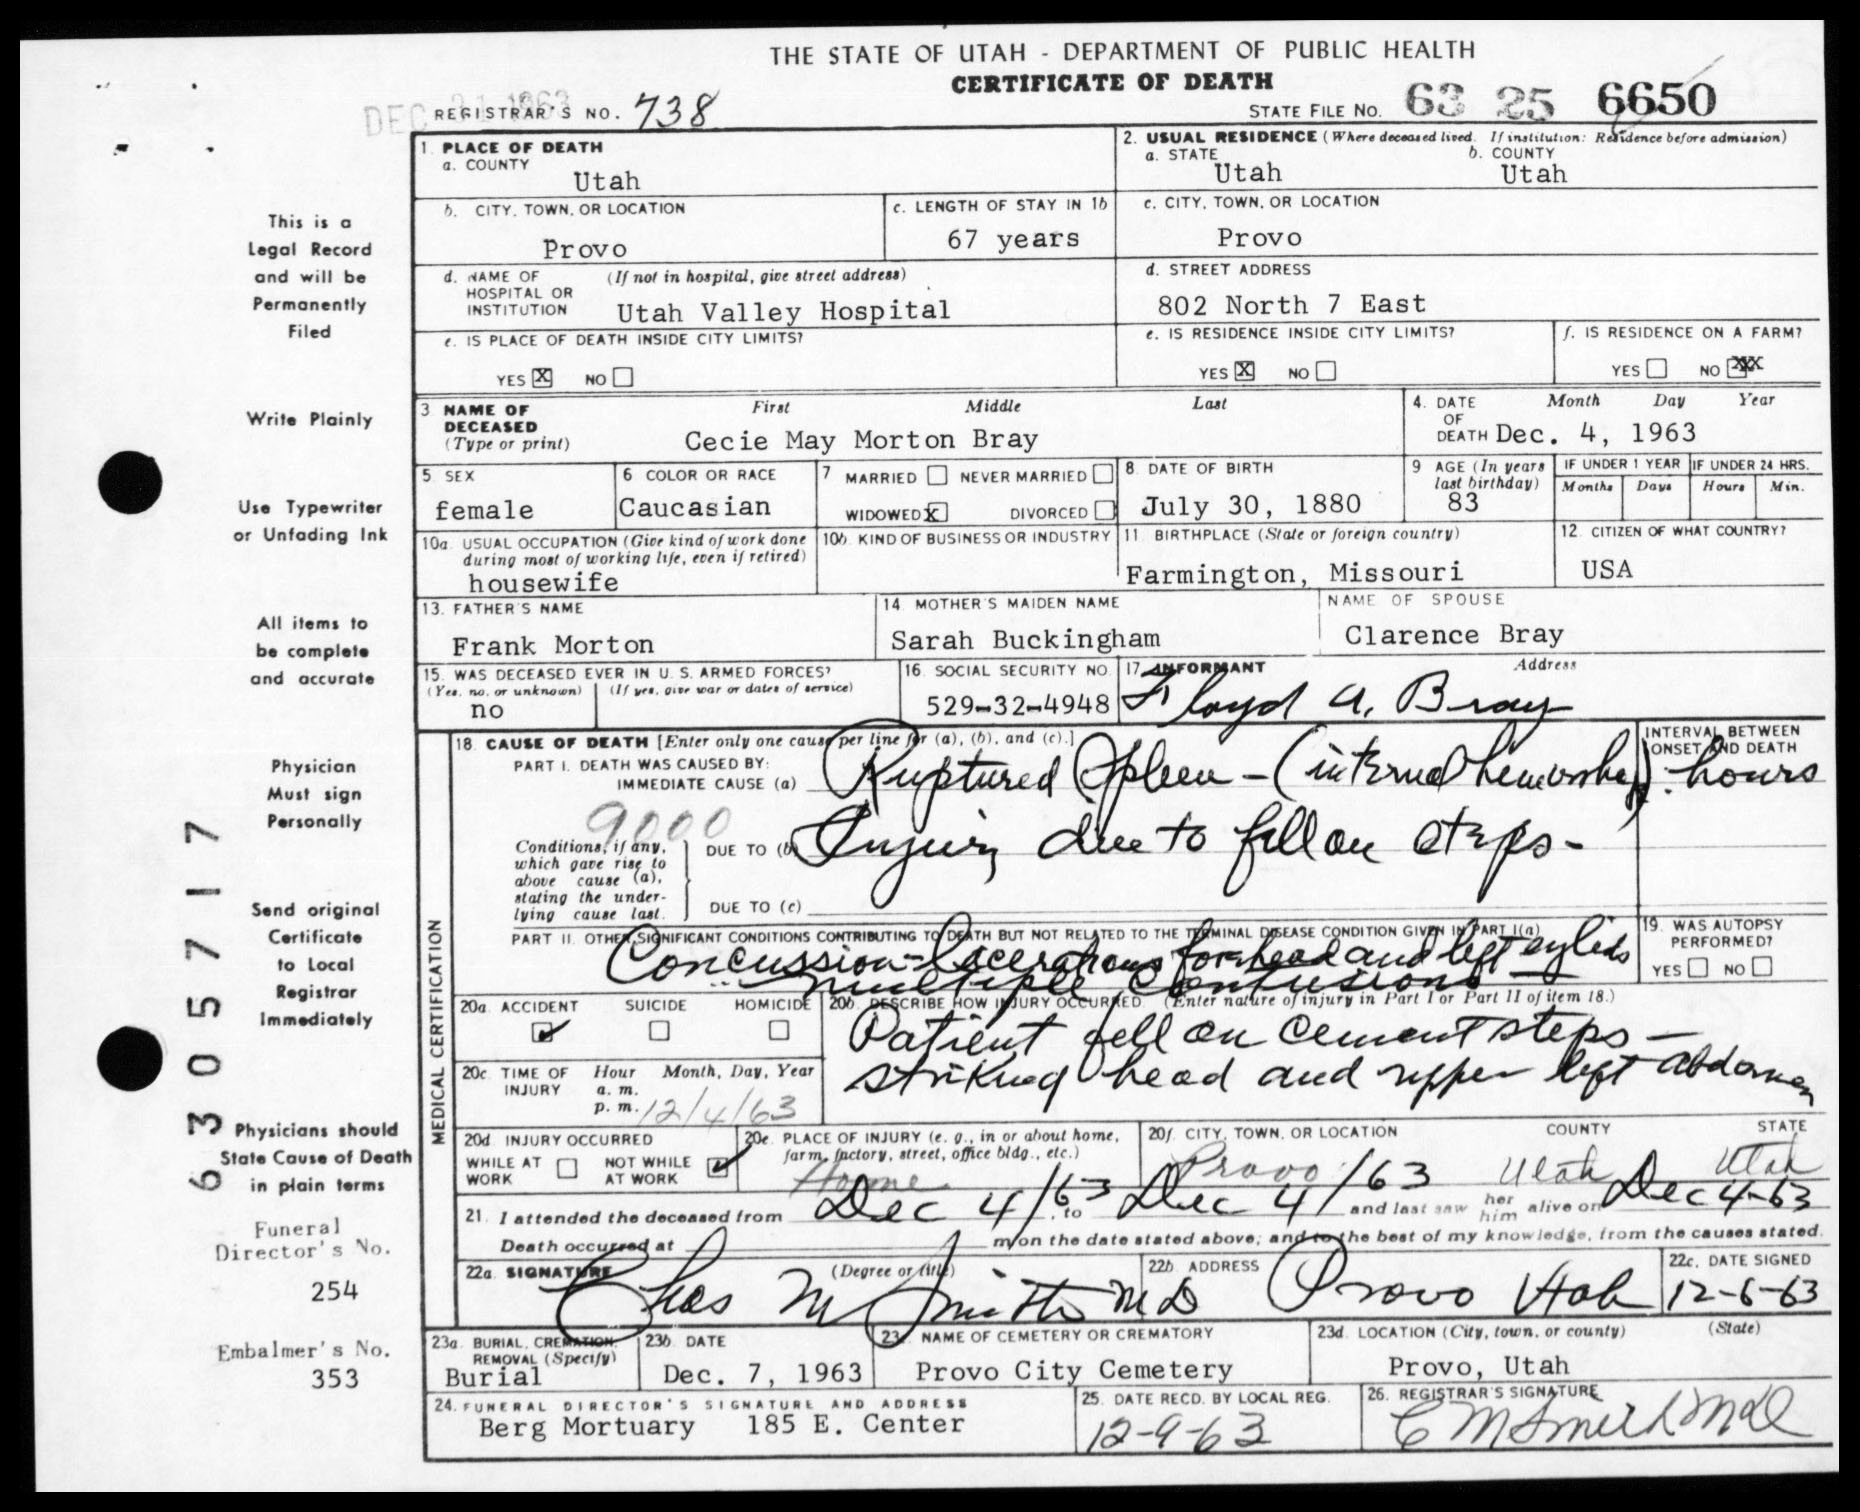 THE STATE OF UTAH - DEPARTMENT OF PUBLIC HEALTH
CERTIFICATE OF DEATH
DEC 1963
REGISTRAR'S NO. 738
STATE FILE NO. 63 25 6650
1. PLACE OF DEATH
a. COUNTY
Utah
2. USUAL RESIDENCE (Where deceased lived. If institution: Residence before admission)
a. STATE b. COUNTY
Utah Utah
b. CITY, TOWN, OR LOCATION
Provo
c. LENGTH OF STAY IN 1b
67 years
c. CITY, TOWN, OR LOCATION
Provo
d. NAME OF (If not in hospital, give street address)
HOSPITAL OR
INSTITUTION Utah Valley Hospital
d. STREET ADDRESS
802 North 7 East
e. IS PLACE OF DEATH INSIDE CITY LIMITS?
YES X NO
e. IS RESIDENCE INSIDE CITY LIMITS?
YES X NO
f. IS RESIDENCE ON A FARM?
YES NO XX
3. NAME OF First Middle Last
DECEASED
(Type or print) Cecie May Morton Bray
4. DATE Month Day Year
OF
DEATH Dec. 4, 1963
5. SEX
female
6 COLOR OR RACE
Caucasian
7 MARRIED NEVER MARRIED
WIDOWED X DIVORCED
8. DATE OF BIRTH
July 30, 1880
9 AGE (In years
last birthday)
83
IF UNDER 1 YEAR IF UNDER 24 HRS.
Months Days Hours Min.
10a. USUAL OCCUPATION (Give kind of work done
during most of working life, even if retired)
housewife
10b. KIND OF BUSINESS OR INDUSTRY
11. BIRTHPLACE (State or foreign country)
Farmington, Missouri
12. CITIZEN OF WHAT COUNTRY?
USA
13. FATHER'S NAME
Frank Morton
14. MOTHER'S MAIDEN NAME
Sarah Buckingham
NAME OF SPOUSE
Clarence Bray
15. WAS DECEASED EVER IN U.S. ARMED FORCES?
(Yes, no, or unknown) (If yes, give war or dates of service)
no
16. SOCIAL SECURITY NO.
529-32-4948
17. INFORMANT Address
Floyd A. Bray
MEDICAL CERTIFICATION
18. CAUSE OF DEATH [Enter only one cause per line for (a), (b), and (c).]
INTERVAL BETWEEN
ONSET AND DEATH
PART I. DEATH WAS CAUSED BY:
IMMEDIATE CAUSE (a) Ruptured Spleen - (internal hemorrhage) hours
9000
Conditions, if any,
which gave rise to
above cause (a),
stating the under-
lying cause last.
DUE TO (b) Injury due to fall on steps -
DUE TO (c)
PART II. OTHER SIGNIFICANT CONDITIONS CONTRIBUTING TO DEATH BUT NOT RELATED TO THE TERMINAL DISEASE CONDITION GIVEN IN PART I(a)
Concussion - lacerations forehead and left eyelids
multiple contusions
19. WAS AUTOPSY
PERFORMED?
YES NO
20a. ACCIDENT SUICIDE HOMICIDE
20b. DESCRIBE HOW INJURY OCCURRED. (Enter nature of injury in Part I or Part II of item 18.)
Patient fell on cement steps -
striking head and upper left abdomen
20c. TIME OF Hour Month, Day, Year
INJURY a. m.
p. m. 12/4/63
20d. INJURY OCCURRED
WHILE AT NOT WHILE
WORK AT WORK
20e. PLACE OF INJURY (e. g., in or about home,
farm, factory, street, office bldg., etc.)
Home
20f. CITY, TOWN, OR LOCATION COUNTY STATE
Provo Utah Utah
21. I attended the deceased from Dec 4/63 to Dec 4/63 and last saw her him alive on Dec 4-63
Death occurred at m, on the date stated above; and to the best of my knowledge, from the causes stated.
22a. SIGNATURE (Degree or title)
Chas M Smith MD
22b. ADDRESS
Provo Utah
22c. DATE SIGNED
12-6-63
23a. BURIAL, CREMATION,
REMOVAL (Specify)
Burial
23b. DATE
Dec. 7, 1963
23c. NAME OF CEMETERY OR CREMATORY
Provo City Cemetery
23d. LOCATION (City, town, or county) (State)
Provo, Utah
24. FUNERAL DIRECTOR'S SIGNATURE AND ADDRESS
Berg Mortuary 185 E. Center
25. DATE RECD. BY LOCAL REG.
12-9-63
26. REGISTRAR'S SIGNATURE
C M Smith MD
This is a
Legal Record
and will be
Permanently
Filed
Write Plainly
Use Typewriter
or Unfading Ink
All items to
be complete
and accurate
Physician
Must sign
Personally
Send original
Certificate
to Local
Registrar
Immediately
Physicians should
State Cause of Death
in plain terms
Funeral
Director's No.
254
Embalmer's No.
353
63 057 17